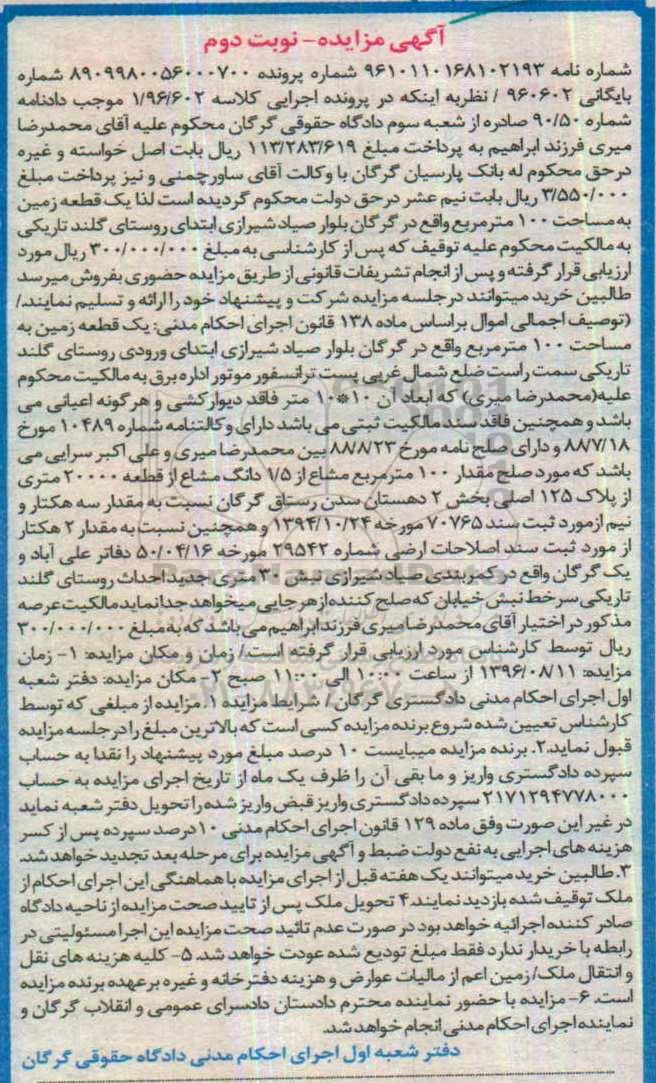 آگهی مزایده- نوبت دوم
شماره نامه ۹۶۱۰۱۱۰۱۶۸۱۰۲۱۹۳ شماره پرونده ۸۹۰۹۹۸۰۰۵۶۰۰۰۷۰۰ شماره
بایگانی ۹۶۰۶۰۲ / نظربه اینکه در پرونده اجرایی کلاسه ۱/۹۶/۶۰۲ موجب دادنامه
شماره ۹۰/۵۰ صادره از شعبه سوم دادگاه حقوقی گرگان محکوم علیه آقای محمدرضا
میری فرزند ابراهیم به پرداخت مبلغ ۱۱۳/۲۸۳/۶۱۹ ریال بابت اصل خواسته و غیره
درحق محکوم له بانک پارسیان گرگان با وکالت آقای ساورچمنی و نیز پرداخت مبلغ
۳/۵۵۰/۰۰۰ ریال بابت نیم عشر درحق دولت محکوم گردیده است لذا یک قطعه زمین
به مساحت ۱۰۰ مترمربع واقع در گرگان بلوار صیاد شیرازی ابتدای روستای گلند تاریکی
به مالکیت محکوم علیه توقیف که پس از کارشناسی به مبلغ ۳۰۰/۰۰۰/۰۰۰ ریال مورد
ارزیابی قرار گرفته و پس از انجام تشریفات قانونی از طریق مزایده حضوری بفروش میرسد
طالبین خرید میتوانند درجلسه مزایده شرکت و پیشنهاد خود را ارائه و تسلیم نمایند./
(توصیف اجمالی اموال براساس ماده ۱۳۸ قانون اجرای احکام مدنی: یک قطعه زمین به
مساحت ۱۰۰ مترمربع واقع در گرگان بلوار صیاد شیرازی ابتدای ورودی روستای گلند
تاریکی سمت راست ضلع شمال غربی پست ترانسفور موتور اداره برق به مالکیت محکوم
علیه(محمدرضا میری) که ابعاد آن ۱۰*۱۰ متر فاقد دیوارکشی و هرگونه اعیانی می
باشد و همچنین فاقد سند مالکیت ثبتی می باشد دارای وکالتنامه شماره ۱۰۴۸۹ مورخ
۸۸/۷/۱۸ و دارای صلح نامه مورخ ۸۸/۸/۲۳ بین محمدرضا میری و علی اکبر سرایی می
باشد که مورد صلح مقدار ۱۰۰ مترمربع مشاع از ۱/۵ دانگ مشاع از قطعه ۲۰۰۰۰ متری
از پلاک ۱۲۵ اصلی بخش ۲ دهستان سدن رستاق گرگان نسبت به مقدار سه هکتار و
نیم ازمورد ثبت سند ۷۰۷۶۵ مورخه ۱۳۹۴/۱۰/۲۴ و همچنین نسبت به مقدار ۲ هکتار
از مورد ثبت سند اصلاحات ارضی شماره ۲۹۵۴۲ مورخه ۵۰/۰۴/۱۶ دفاتر علی آباد و
یک گرگان واقع در کمربندی صیاد شیرازی نبش ۳۰ متری جدید احداث روستای گلند
تاریکی سرخط نبش خیابان که صلح کننده ازهرجایی میخواهد جدا نماید مالکیت عرصه
مذکور در اختیار آقای محمدرضا میری فرزند ابراهیم می باشد که به مبلغ ۳۰۰/۰۰۰/۰۰۰
ریال توسط کارشناس مورد ارزیابی قرار گرفته است./ زمان و مکان مزایده: ۱- زمان
مزایده: ۱۳۹۶/۰۸/۱۱ از ساعت ۱۰:۰۰ الی ۱۱:۰۰ صبح ۲- مکان مزایده: دفتر شعبه
اول اجرای احکام مدنی دادگستری گرگان / شرایط مزایده ۱. مزایده از مبلغی که توسط
کارشناس تعیین شده شروع برنده مزایده کسی است که بالاترین مبلغ را درجلسه مزایده
قبول نماید.۲. برنده مزایده میبایست ۱۰ درصد مبلغ مورد پیشنهاد را نقدا به حساب
سپرده دادگستری واریز و ما بقی آن را ظرف یک ماه از تاریخ اجرای مزایده به حساب
۲۱۷۱۲۹۴۷۷۸۰۰۰ سپرده دادگستری واریز قبض واریز شده را تحویل دفتر شعبه نماید
در غیر این صورت وفق ماده ۱۲۹ قانون اجرای احکام مدنی ۱۰درصد سپرده پس از کسر
هزینه های اجرایی به نفع دولت ضبط و آگهی مزایده برای مرحله بعد تجدید خواهد شد.
۳.طالبین خرید میتوانند یک هفته قبل از اجرای مزایده با هماهنگی این اجرای احکام از
ملک توقیف شده بازدید نمایند.۴ تحویل ملک پس از تایید صحت مزایده از ناحیه دادگاه
صادر کننده اجرائیه خواهد بود در صورت عدم تائید صحت مزایده این اجرا مسئولیتی در
رابطه با خریدار ندارد فقط مبلغ تودیع شده عودت خواهد شد. ۵- کلیه هزینه های نقل
و انتقال ملک/ زمین اعم از مالیات عوارض و هزینه دفترخانه و غیره برعهده برنده مزایده
است. ۶- مزایده با حضور نماینده محترم دادستان دادسرای عمومی و انقلاب گرگان و
نماینده اجرای احکام مدنی انجام خواهد شد.
دفتر شعبه اول اجرای احکام مدنی دادگاه حقوقی گرگان